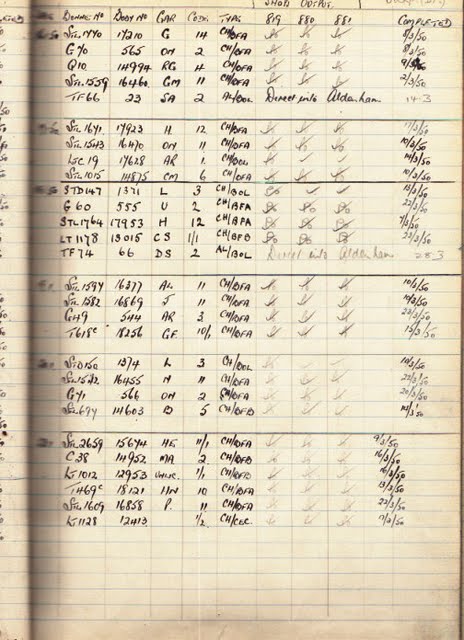 SHOP OUTPUT.
BONNET NO BODY NO GAR CODE. TYPE 819 880 881 COMPLETED
17210 G 14 CH/OFA 8/3/50
G70 565 ON 2 CH/OFA 8/3/50
Q10 14994 RG 4 CH/OFA
STL.1559 16460 GM 11 CH/OFA 2/3/50
TF66 23 SA 2 AL/BOL Direct into Aldenham 14-3
STL.1671 17923 H 12 CH/OFA 17/3/50
STL.1543 16470 ON 11 CH/OFA 10/3/50
LTC 19 17628 AR 1. CH/BOL 10/3/50
STL.1015 14875 CM 6 CH/OFA 10/3/50
STD147 1371 L 3 CH/BOL 13/3/50
G60 555 U 2 CH/BFA 22/3/50
STL1764 17953 H 12 CH/BFA 7/3/50
LT1178 13015 CS 1/1 CH/BFD 22/3/50
TF74 66 DS 2 AL/BOL Direct into Aldenham 28-3
STL.1594 16377 AL 11 CH/OFA 10/3/50
STL.1582 16869 J 11 CH/OFA 10/3/50
G49 544 AR 3 CH/OFA 22/3/50
T618c 18256 GF 10/1 CH/OFA 15/3/50
STD150 1374 L 3 CH/BOL 10/3/50
16455 N 11 CH/OFA 22/3/50
G71 566 ON 2 CH/OFA 20/3/50
STL.694 14603 B 5 CH/OFD 10/3/50
STL.2659 15674 HE 11/1 CH/OFA 9/3/50
C38 14952 MA 2 CH/BFD 16/3/50
LT1012 12953 1/1 CH/BFD 16/3/50
T469c 18121 HN 10 CH/OFA 13/3/50
STL.1609 16858 P. 11 CH/OFA 22/3/50
LT1128 12413 1/2 CH/CEC. 7/3/50